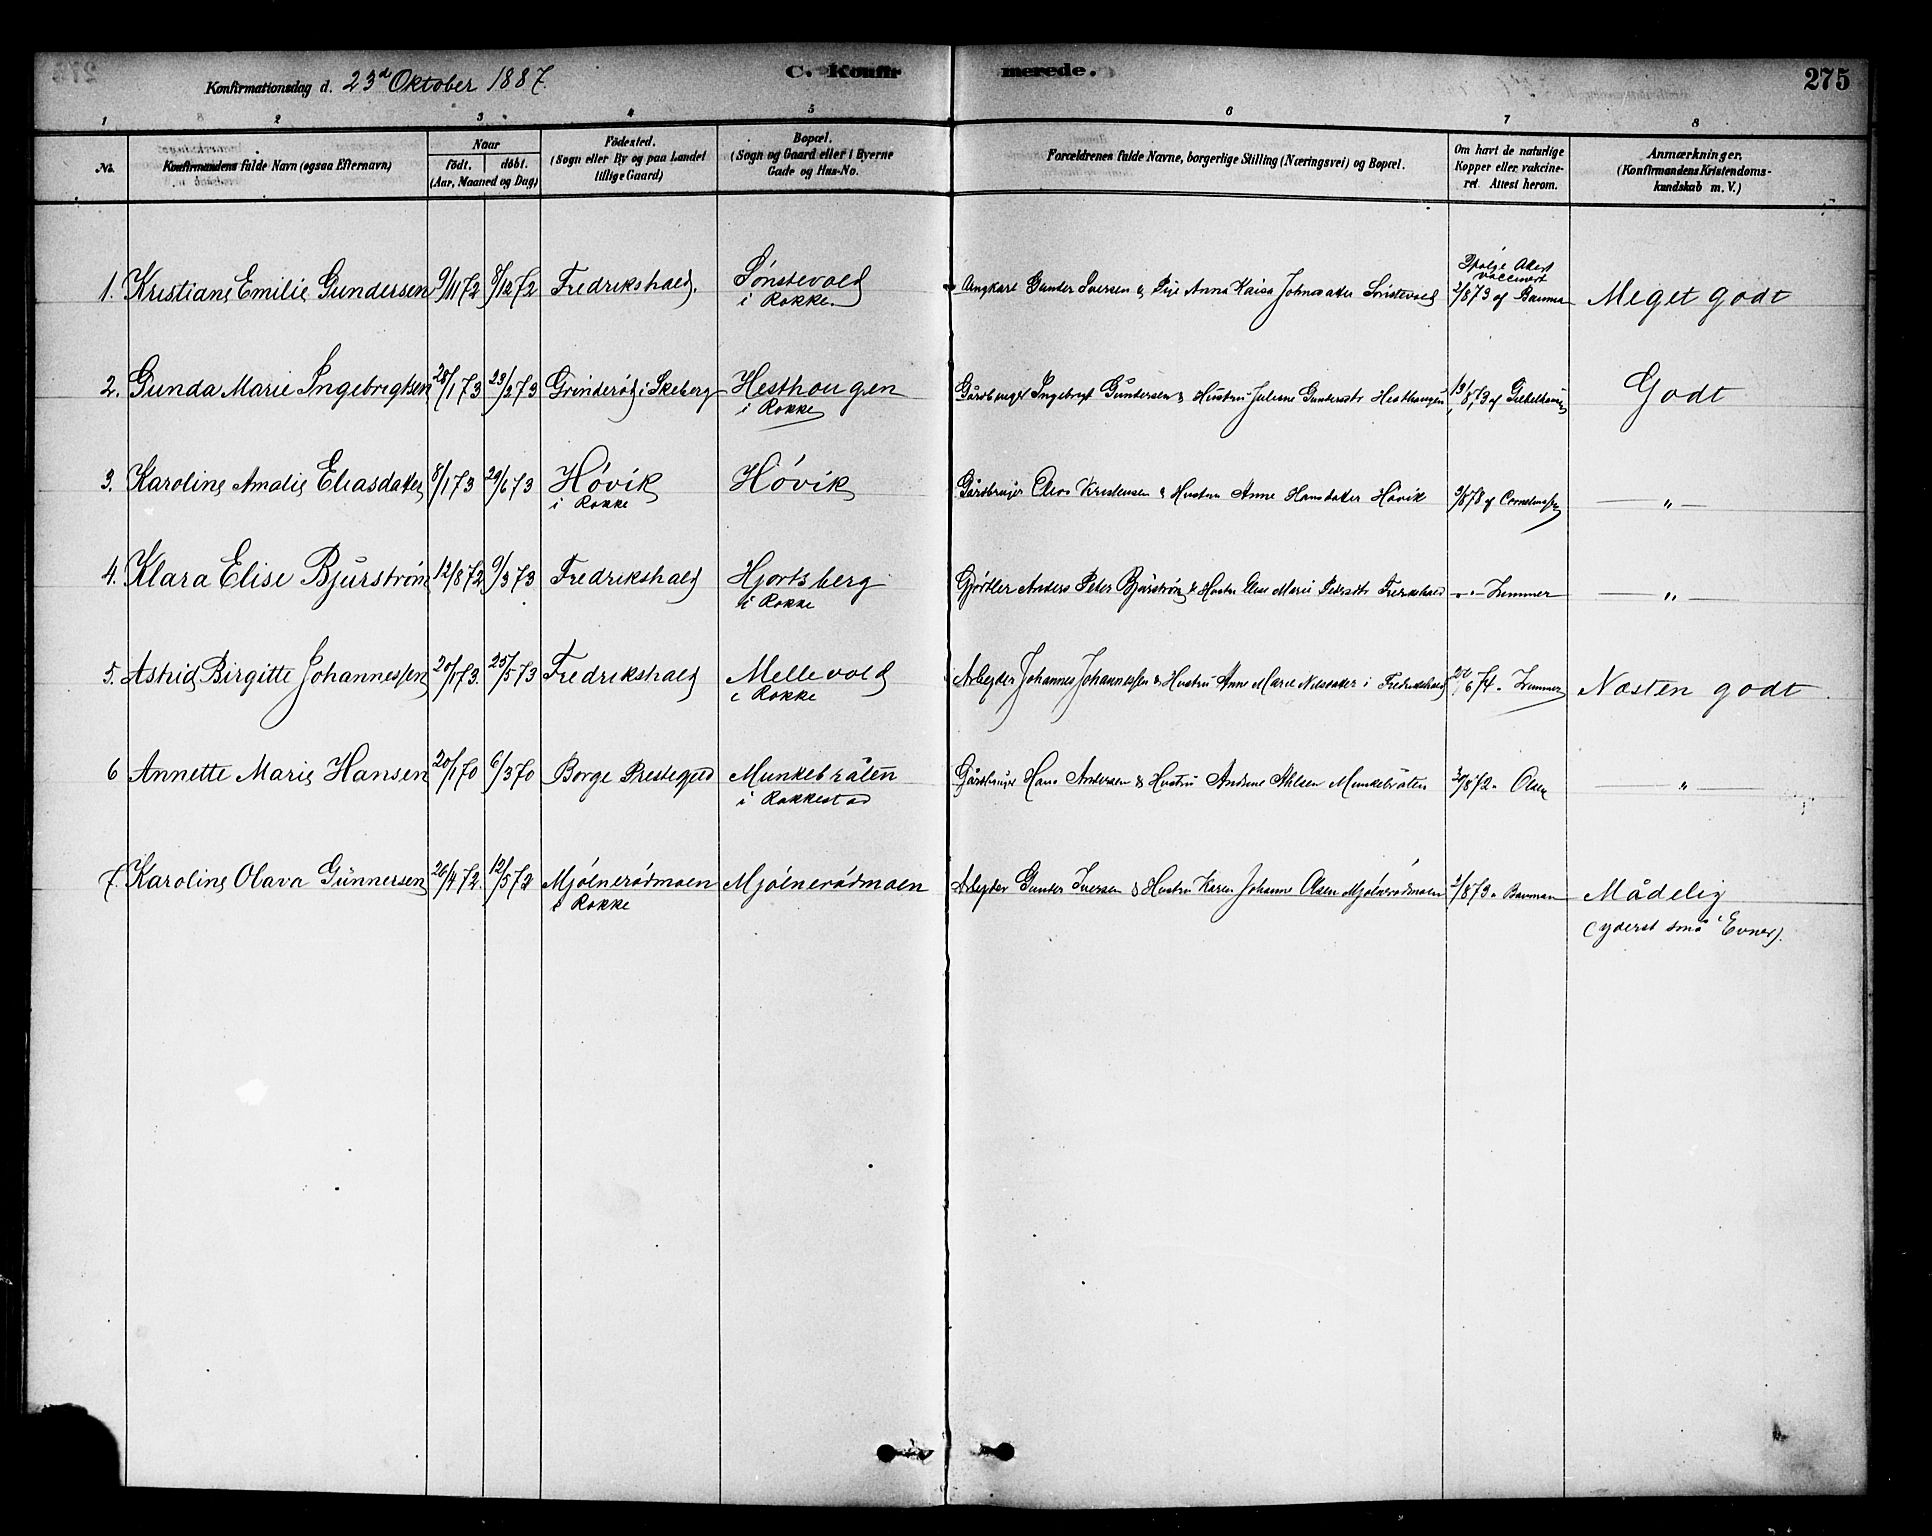 275
Konfirmationsdag d. 23de Oktober 1887.
C. Konfirmerede.
1 2 3 4 5 6 7 8
No. Konfirmandens fulde Navn (ogsaa Efternavn) Naar født. døbt. (Aar, Maaned og Dag) Fødested. (Sogn eller By og paa Landet tillige Gaard) Bopæl. (Sogn og Gaard eller i Byerne Gade og Hus-No. Forældrenes fulde Navne, borgerlige Stilling (Næringsvei) og Bopæl. Om havt de naturlige Kopper eller vakcineret. Attest herom. Anmærkninger. (Konfirmandens Kristendomskundskab m. V.)
1. Kristiane Emilie Gundersen 9/11 72 8/12 72 Fredrikshald. Sønstevold i Rokke. Ungkarl Gunder Iversen & Pige Anna Kaisa Johnsdatter Sønstevold Ifølge Attest vaccinert 2/8 73 af Bauman Meget godt
2. Gunda Marie Ingebrigtsen 28/1 73 23/3 73 Grinderød i Skeberg Hesthougen i Rokke Gårdbruger Ingebrygt Gundersen & Hustru Juliane Gundersdtr Hesthaugen 13/8 73 af Godt
3. Karoline Amalie Eliasdatter 8/1 73 29/6 73 Høvik i Rokke Høvik Gårdbruger Elias Kristensen & Hustru Anne Hansdatter Høvik 9/8 78 af Corneliussen — " —
4. Klara Elise Bjurstrøm 12/8 72 9/3 73 Fredrikshald Hjortsberg i Rokke Gjørtler Anders Peter Bjurstrøm & Hustru Else Marie Pedersdtr Fredrikshald " " Zimmer — " —
5. Astrid Birgitte Johannessen 20/1 73. 25/5 73 Fredrikshald Mellevold i Rokke Arbejder Johannes Johannessen & Hustru Anne Marie Nilsdatter i Fredrikshald 20/6 74 " Zimmer Næsten godt.
6 Annette Marie Hansen 20/1 70 6/3 70 Borge Prestegjed Munkebråten i Rakkestad Gårdbruger Hans Andersen & Hustru Andrine Nilsen Munkebråten 30/8 72 " Olsen — " —
7. Karoline Olava Gunnersen 26/4 72. 12/5 72 Mjølnerødmoen i Rokke Mjølnerødmoen Arbejder Gunder Iversen & Hustru Karen Johanne Olsen Mjølnerødmoen 2/8 73 " Bauman Mådelig
(yderst små Evner).